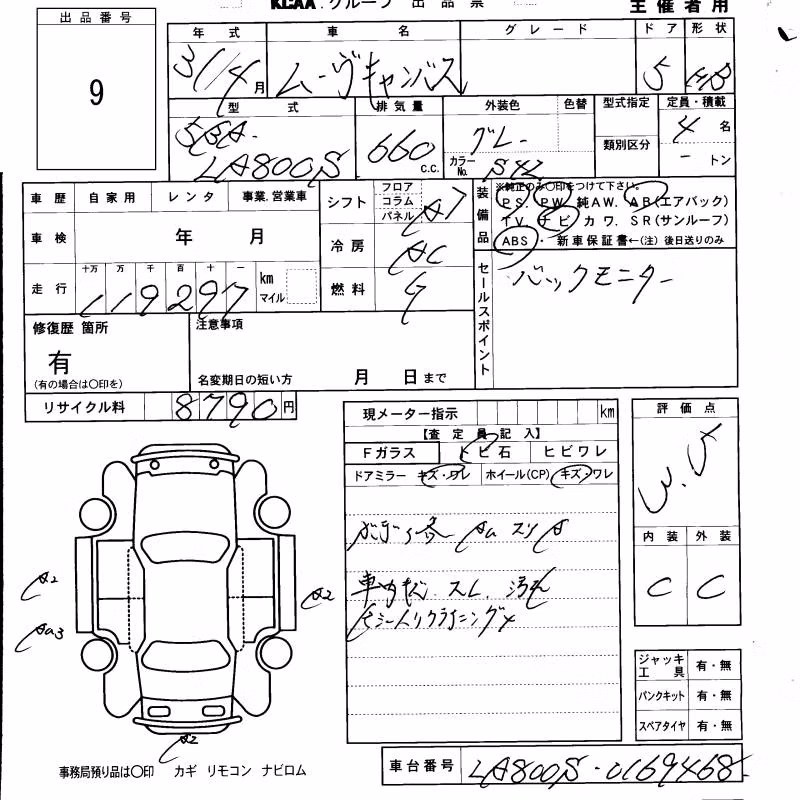 KCAA.グループ 出品票
主催者用
出品番号
9
年式 車名 グレード ドア 形状
31/4月 ムーヴキャンバス 5 HB
型式 排気量 外装色 色替 型式指定 定員・積載
5BA-
LA800S 660 c.c. グレー 類別区分 4名
カラーNo. S42 トン
車歴 自家用 レンタ 事業.営業車
シフト フロア コラム パネル AT
装備品 ※純正のみ〇印をつけて下さい。
PS. PW. 純AW. AB(エアバック)
TV. ナビ カワ. SR(サンルーフ)
ABS ・ 新車保証書←(注)後日送りのみ
車検 年 月
冷房 AC
走行 十万 万 千 百 十 一
119297 km マイル
燃料 G
セールスポイント バックモニター
修復歴 箇所
有
(有の場合は〇印を)
注意事項
名変期日の短い方 月 日まで
リサイクル料 8790円
現メーター指示 km
【査定員記入】
Fガラス トビ石 ヒビワレ
ドアミラー キズ・ワレ ホイール(CP) キズ・ワレ
評価点
3.5
内装 外装
C C
A2
A2
A2
ジャッキ工具 有・無
パンクキット 有・無
スペアタイヤ 有・無
事務局預り品は〇印 カギ リモコン ナビロム
車台番号 LA800S-0169468